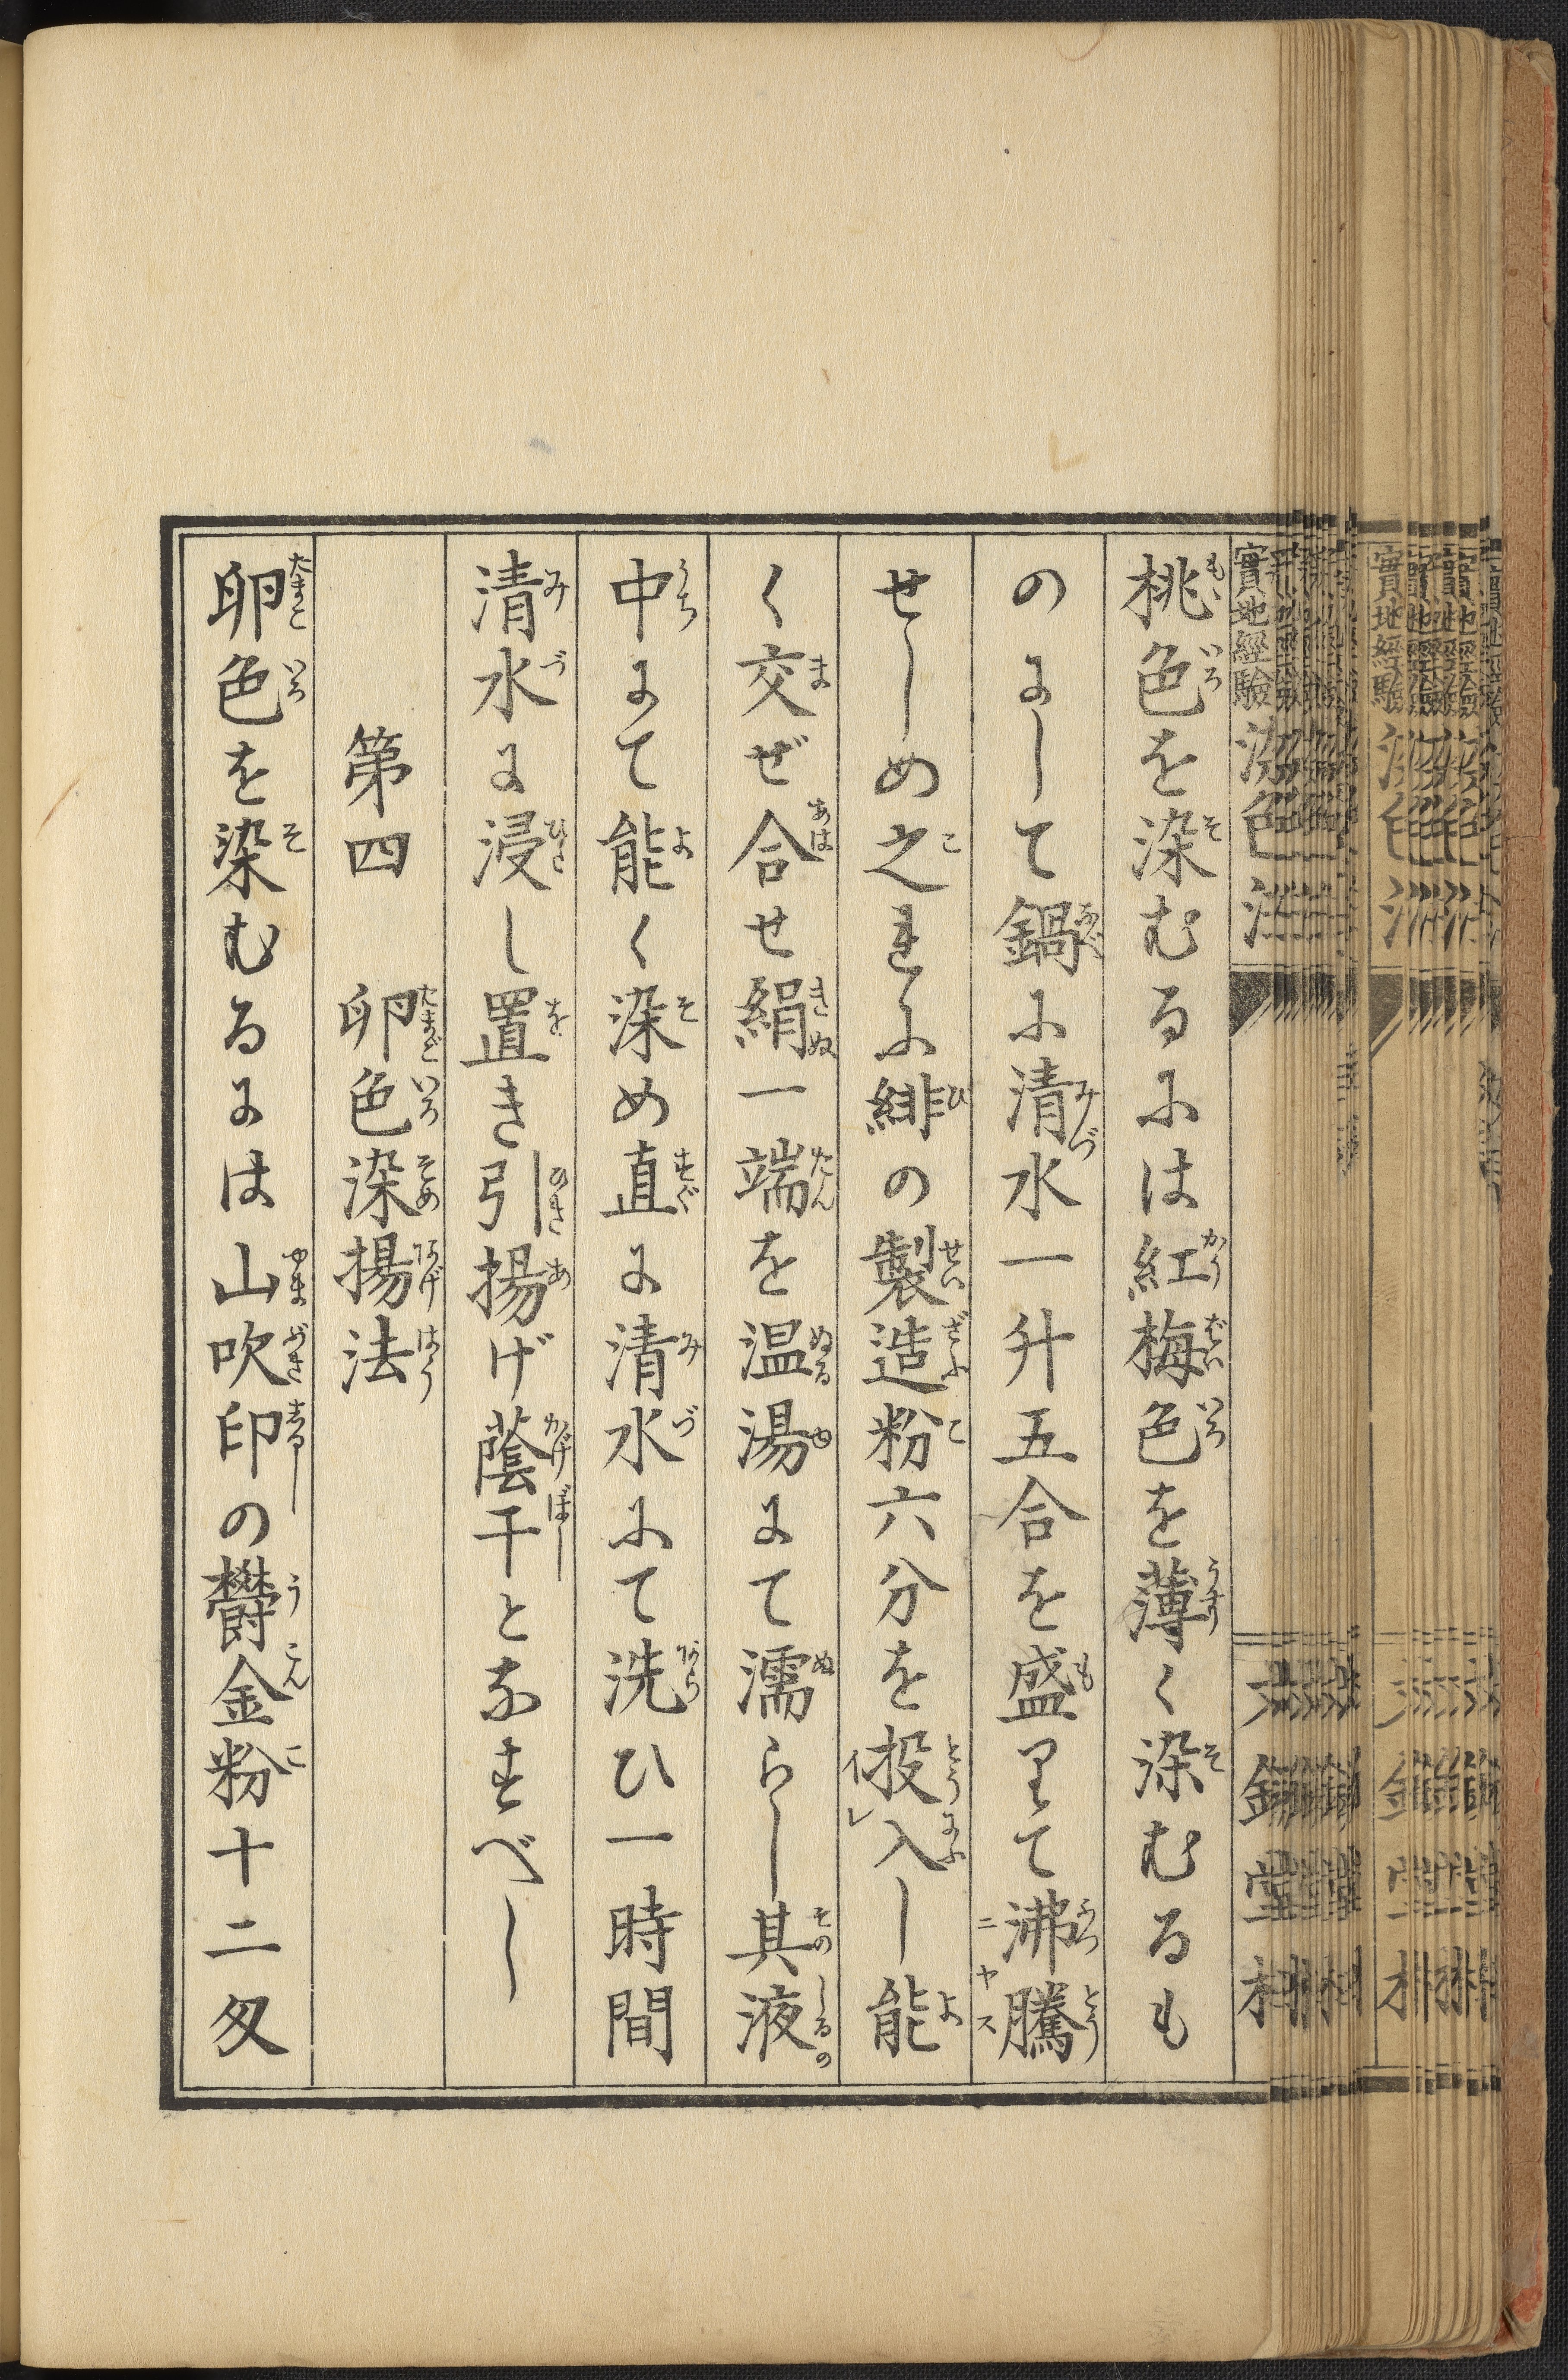 實地經驗 染色法
桃色を染むるには紅梅色を薄く染むるも
のにして鍋に清水一升五合を盛りて沸騰
せしめ之れに緋の製造粉六分を投入し能
く交ぜ合せ絹一端を温湯にて濡らし其液
中にて能く染め直に清水にて洗ひ一時間
清水に浸し置き引揚げ蔭干となすべし
第四　卵色染揚法
卵色を染むるには山吹印の欝金粉十二匁